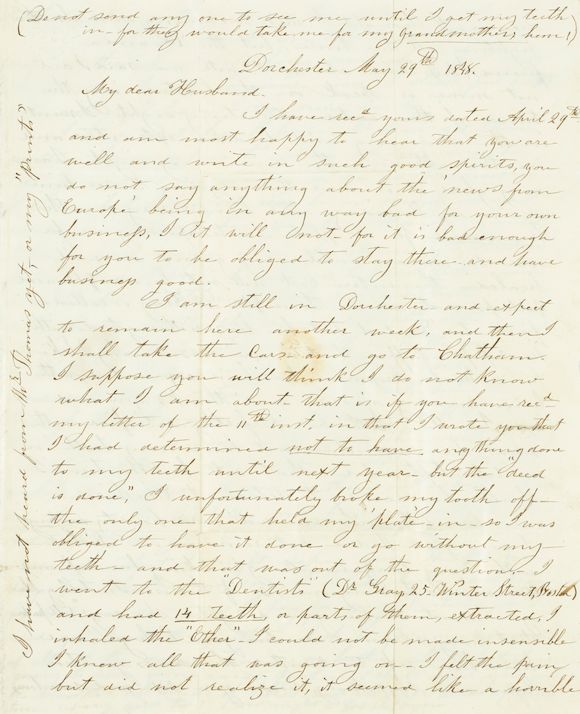 (Do not send any one to see me until I get my teeth
in - for they would take me for my grandmother, hem!)
Dorchester May 29th 1848.
My dear Husband.
I have recd yours dated April 29th
and am most happy to hear that you are
well and write in such good spirits, you
do not say anything about the 'news from
Europe' being in any way bad for your own
business, I it will not - for it is bad enough
for you to be obliged to stay there - and have
business good.
I am still in Dorchester and expect
to remain here another week, and then I
shall take the Cars and go to Chatham.
I suppose you will think I do not know
what I am about - that is if you have recd -
my letter of the 11th inst. in that I wrote you that
I had determined not to have anything done
to my teeth until next year - but the "deed
is done," I unfortunately broke my tooth off -
the only one that held my 'plate - in - so I was
obliged to have it done or go without my -
teeth - and that was out of the question - I
went to the "Dentists" (Dr Gray 25. Winter Street, Boston)
and had 14 teeth, or parts of them, extracted, I
inhaled the "Ether" - I could not be made insensible
I knew all that was going on - I felt the pain,
but did not realize it, it seemed like a horrible
I have not heard from Mrs Thomas yet, or my "Prints"